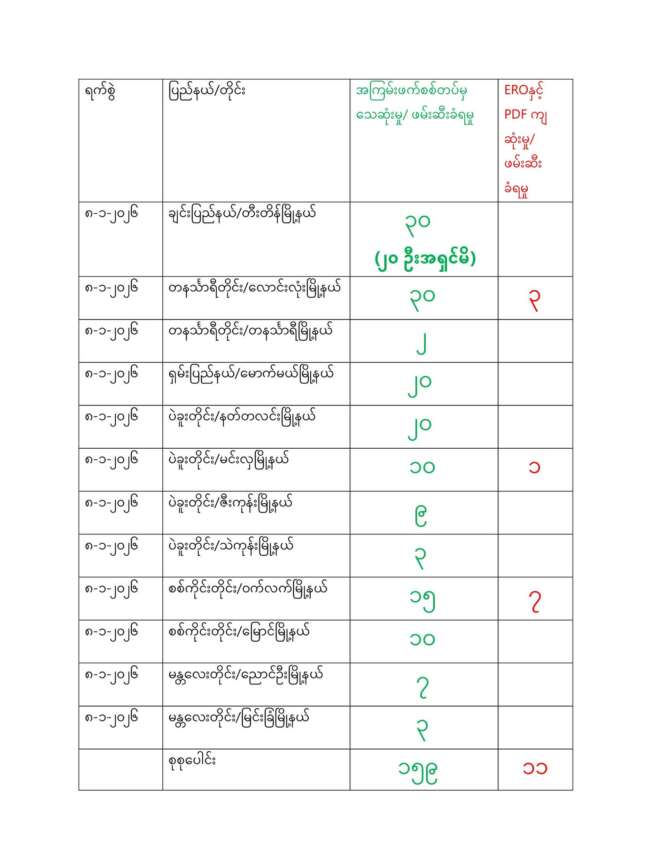 ရက်စွဲ ပြည်နယ်/တိုင်း အကြမ်းဖက်စစ်တပ်မှ EROနှင့်
သေဆုံးမှု/ ဖမ်းဆီးခံရမှု PDF ကျ
ဆုံးမှု/
ဖမ်းဆီး
ခံရမှု
၈-၁-၂၀၂၆ ချင်းပြည်နယ်/တီးတိန်မြို့နယ် ၃၀
(၂၀ ဦးအရှင်မိ)
၈-၁-၂၀၂၆ တနင်္သာရီတိုင်း/လောင်းလုံးမြို့နယ် ၃၀ ၃
၈-၁-၂၀၂၆ တနင်္သာရီတိုင်း/တနင်္သာရီမြို့နယ် ၂
၈-၁-၂၀၂၆ ရှမ်းပြည်နယ်/မောက်မယ်မြို့နယ် ၂၀
၈-၁-၂၀၂၆ ပဲခူးတိုင်း/နတ်တလင်းမြို့နယ် ၂၀
၈-၁-၂၀၂၆ ပဲခူးတိုင်း/မင်းလှမြို့နယ် ၁၀ ၁
၈-၁-၂၀၂၆ ပဲခူးတိုင်း/ဇီးကုန်းမြို့နယ် ၉
၈-၁-၂၀၂၆ ပဲခူးတိုင်း/သဲကုန်းမြို့နယ် ၃
၈-၁-၂၀၂၆ စစ်ကိုင်းတိုင်း/ဝက်လက်မြို့နယ် ၁၅ ၇
၈-၁-၂၀၂၆ စစ်ကိုင်းတိုင်း/မြောင်မြို့နယ် ၁၀
၈-၁-၂၀၂၆ မန္တလေးတိုင်း/ညောင်ဦးမြို့နယ် ၇
၈-၁-၂၀၂၆ မန္တလေးတိုင်း/မြင်းခြံမြို့နယ် ၃
စုစုပေါင်း ၁၅၉ ၁၁